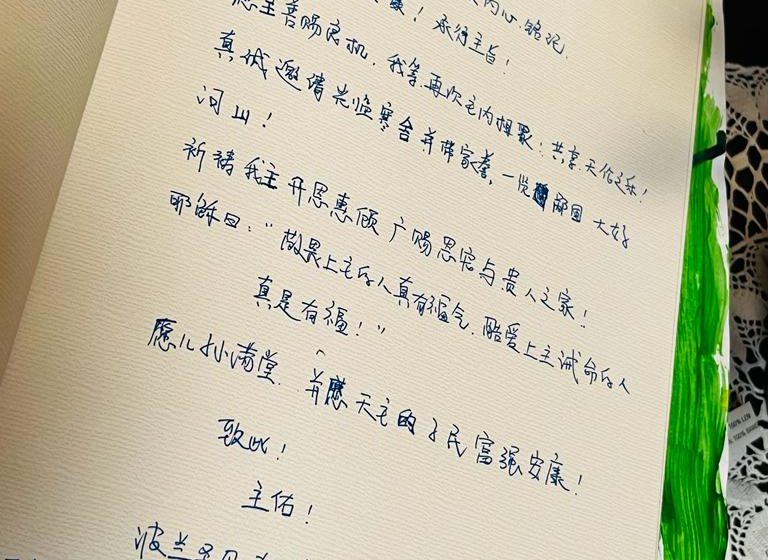 内心. 铭记.
！承行主旨！
愿主善赐良机，我等再次主内相聚！共享天伦之乐！
真诚邀请光临寒舍并带家眷，一览鄙国大好
河山！
祈祷我主开恩惠顾 广赐恩宠与贵人之家！
耶稣曰："敬畏上主的人真有福气，酷爱上主诫命的人
真是有福！"
愿儿孙满堂. 并愿天主的子民富强安康！
致此！
主佑！
波兰
100% LEN